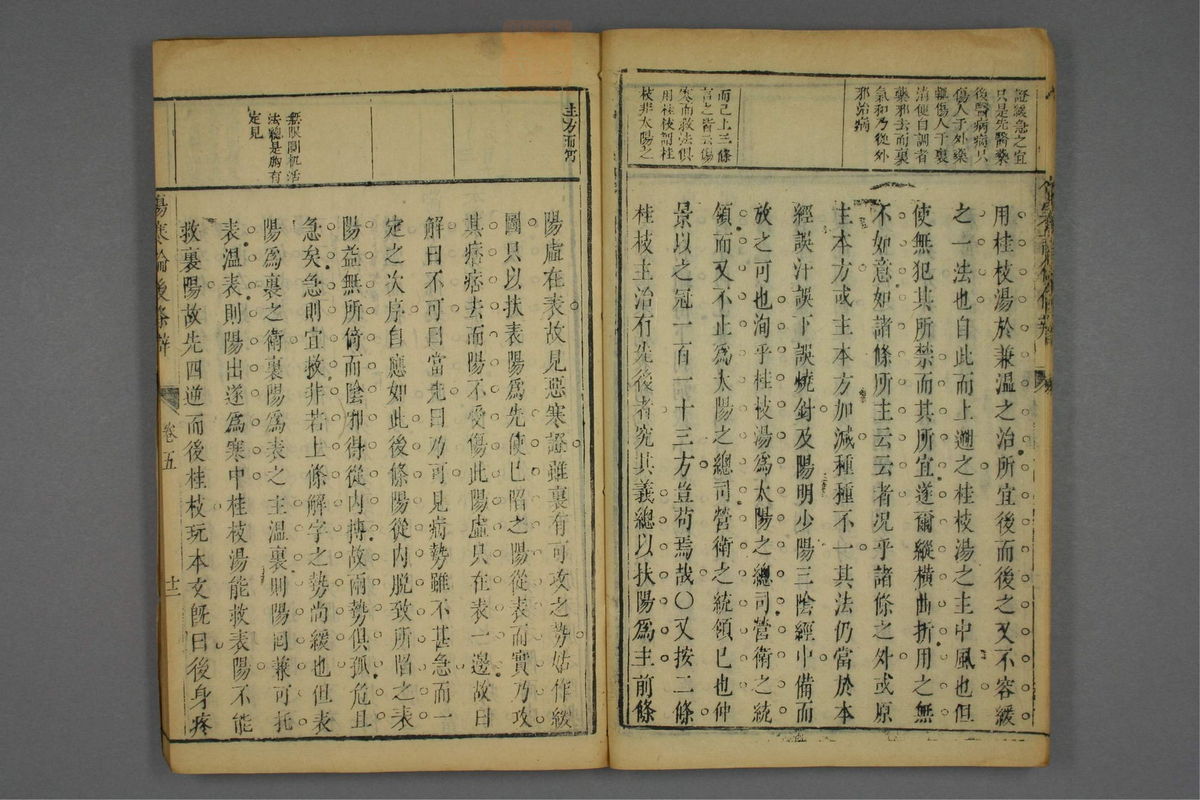 證緩急之宜
只是先醫藥
後醫病病只
傷人于外藥
輒傷人于裏
清便自調者
藥邪去而裏
氣和乃從外
邪治病
而已上三條
言之皆云傷
寒而救法俱
用桂枝謂桂
枝非太陽之
用桂枝湯於兼溫之治所宜後而後之又不容緩
之一法也自此而上遡之桂枝湯之主中風也但
使無犯其所禁而其所宜遂爾縱橫曲折用之無
不如意如諸條所主云云者况乎諸條之外或原
主本方或主本方加減種種不一其法仍當於本
經誤汗誤下誤燒針及陽明少陽三陰經中備而
放之可也洵乎桂枝湯為太陽之總司營衛之統
領而又不止為太陽之總司營衛之統領已也仲
景以之冠一百一十三方豈苟焉哉〇又按二條
桂枝主治有先後者究其義總以扶陽為主前條
主方而寫
無限圓机活
法總是胸有
定見
陽虛在表故見惡寒證雖裏有可攻之勢姑作緩
圖只以扶表陽為先使已陷之陽從表而實乃攻
其痞痞去而陽不受傷此陽虛只在表一邊故曰
解曰不可曰當先曰乃可見病勢雖不甚急而一
定之次序自應如此後條陽從内脱致所陷之表
陽益無所倚而陰邪得從内摶故兩勢俱孤危且
急矣急則宜救非若上條解字之勢尚緩也但表
陽為裏之衛裏陽為表之主溫裏則陽回兼可托
表溫表則陽出遂為寒中桂枝湯能救表陽不能
救裏陽故先四逆而後桂枝玩本文旣曰後身疼
傷寒論後條辨
卷五
十二